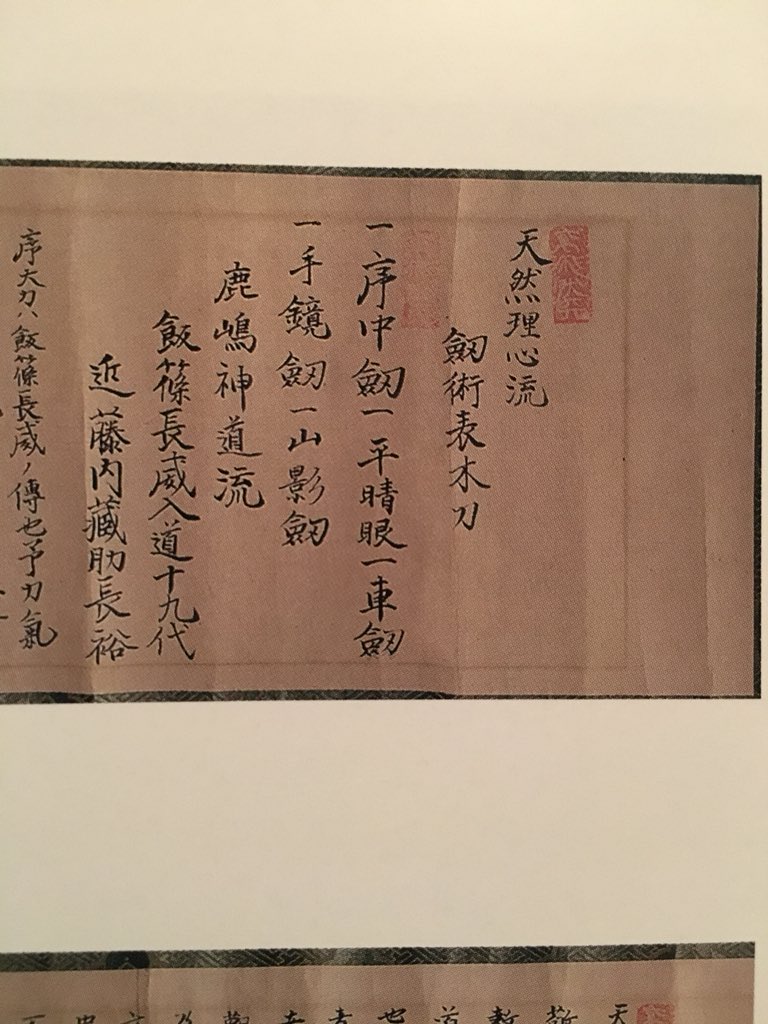 天然理心流
劔術表木刀
一序中劔一平晴眼一車劔
一手鏡劔一山影劔
鹿嶋神道流
飯篠長威入道十九代
近藤内蔵助長裕
序大刀ハ飯篠長威ノ傳也予力氣
天